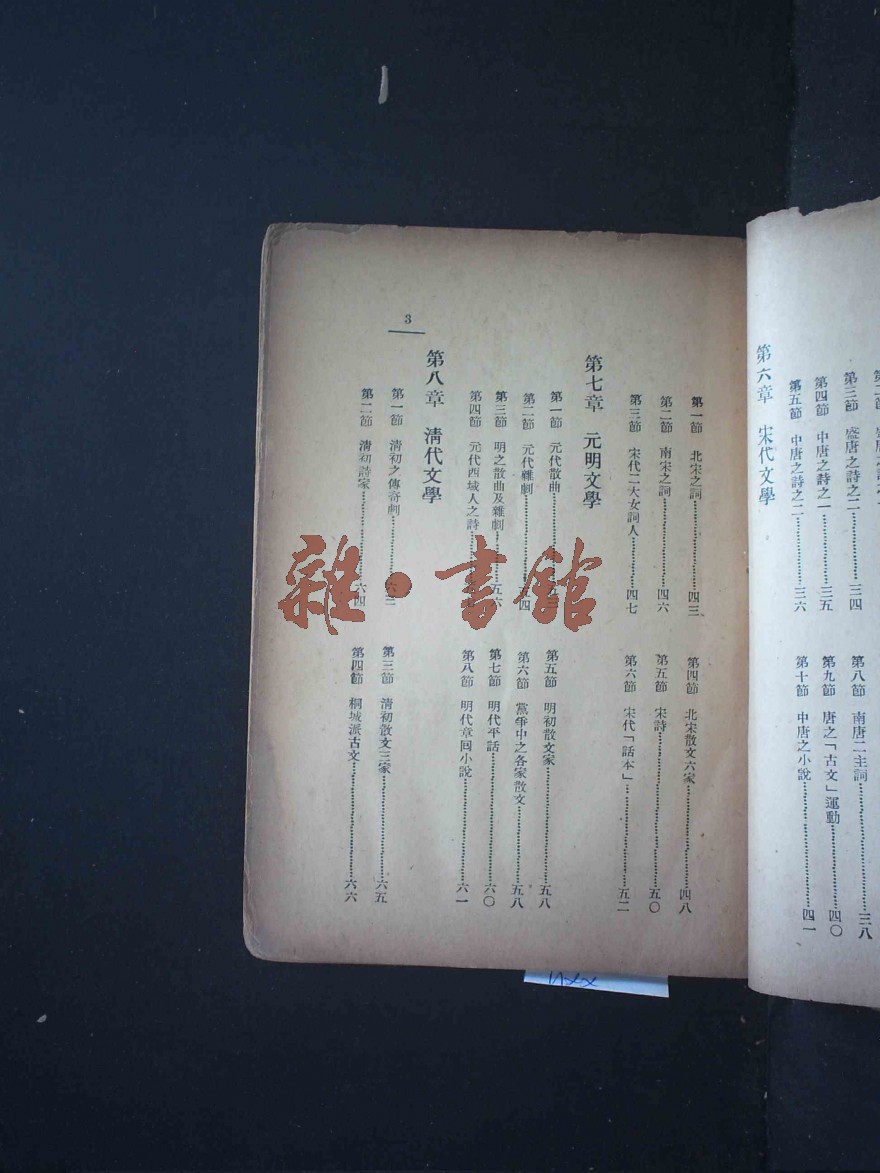 第三節　盛唐之詩之二…………三四
第四節　中唐之詩之一…………三五
第五節　中唐之詩之二…………三六
第八節　南唐二主詞…………三八
第九節　唐之「古文」運動…………四〇
第十節　中唐之小說…………四一
第六章　宋代文學
第一節　北宋之詞…………四三
第二節　南宋之詞…………四六
第三節　宋代二大女詞人…………四七
第四節　北宋散文六家…………四八
第五節　宋詩…………五〇
第六節　宋代「話本」…………五二
第七章　元明文學
第一節　元代散曲…………
第二節　元代雜劇…………四
第三節　明之散曲及雜劇…………五六
第四節　元代西域人之詩…………
第五節　明初散文家…………五八
第六節　黨爭中之各家散文…………五八
第七節　明代平話…………六〇
第八節　明代章回小說…………六一
第八章　清代文學
第一節　清初之傳奇劇…………
第二節　清初詩家…………六四
第三節　清初散文三家…………六五
第四節　桐城派古文…………六六
3
雜·書館